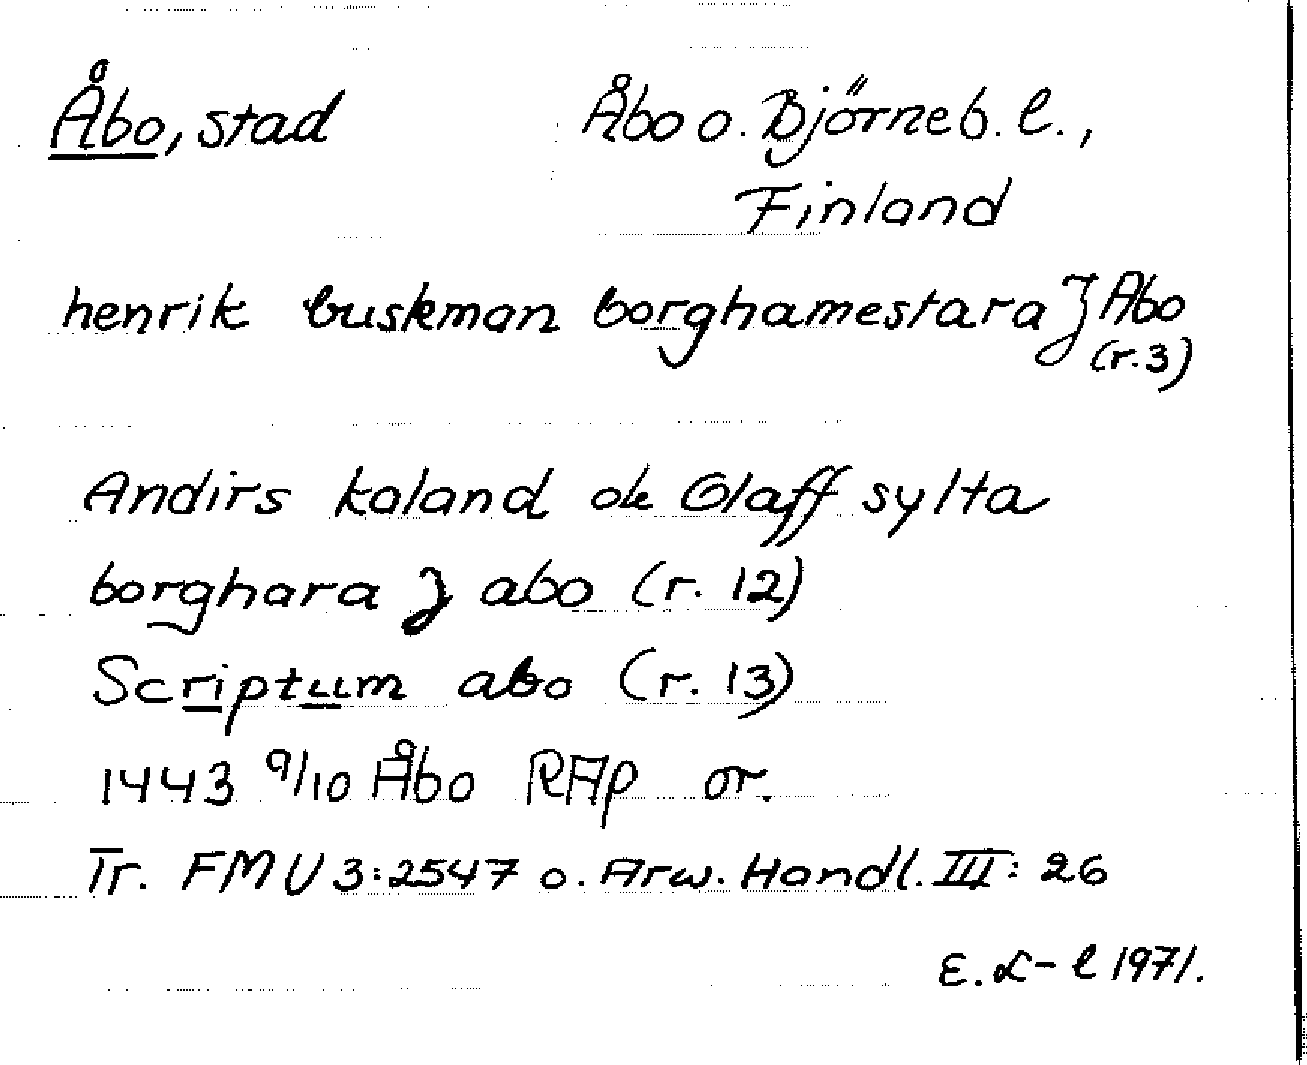 Åbo, stad Åbo o. Björneb. l.,
Finland
henrik buskman borghamestara J Abo
(r.3)
Andirs kaland ok Olaff sylta
borghara J abo (r. 12)
Scriptum abo (r. 13)
1443 9/10 Åbo RAp or.
Tr. FMU 3:2547 o. Arw. Handl. III: 26
E. L-l 1971.